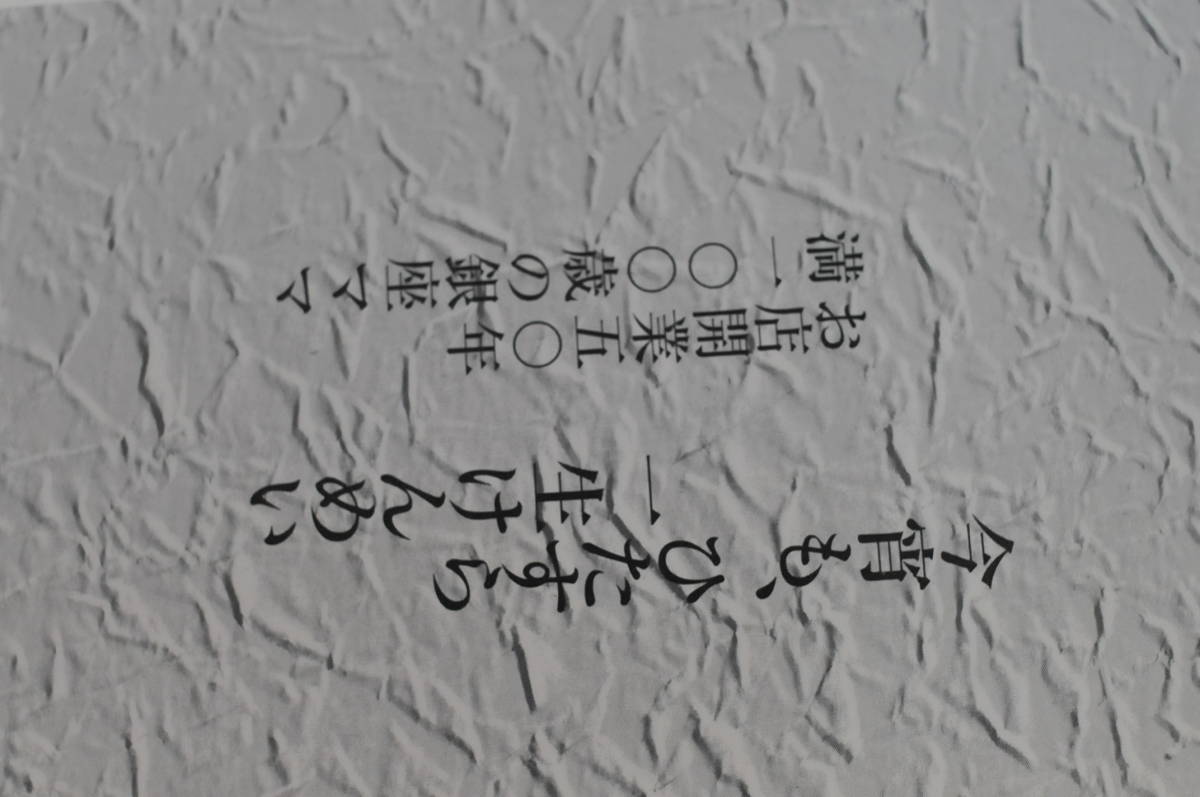 今宵も、ひたすら
一生けんめい
お店開業五〇年
満一〇〇歳の銀座ママ